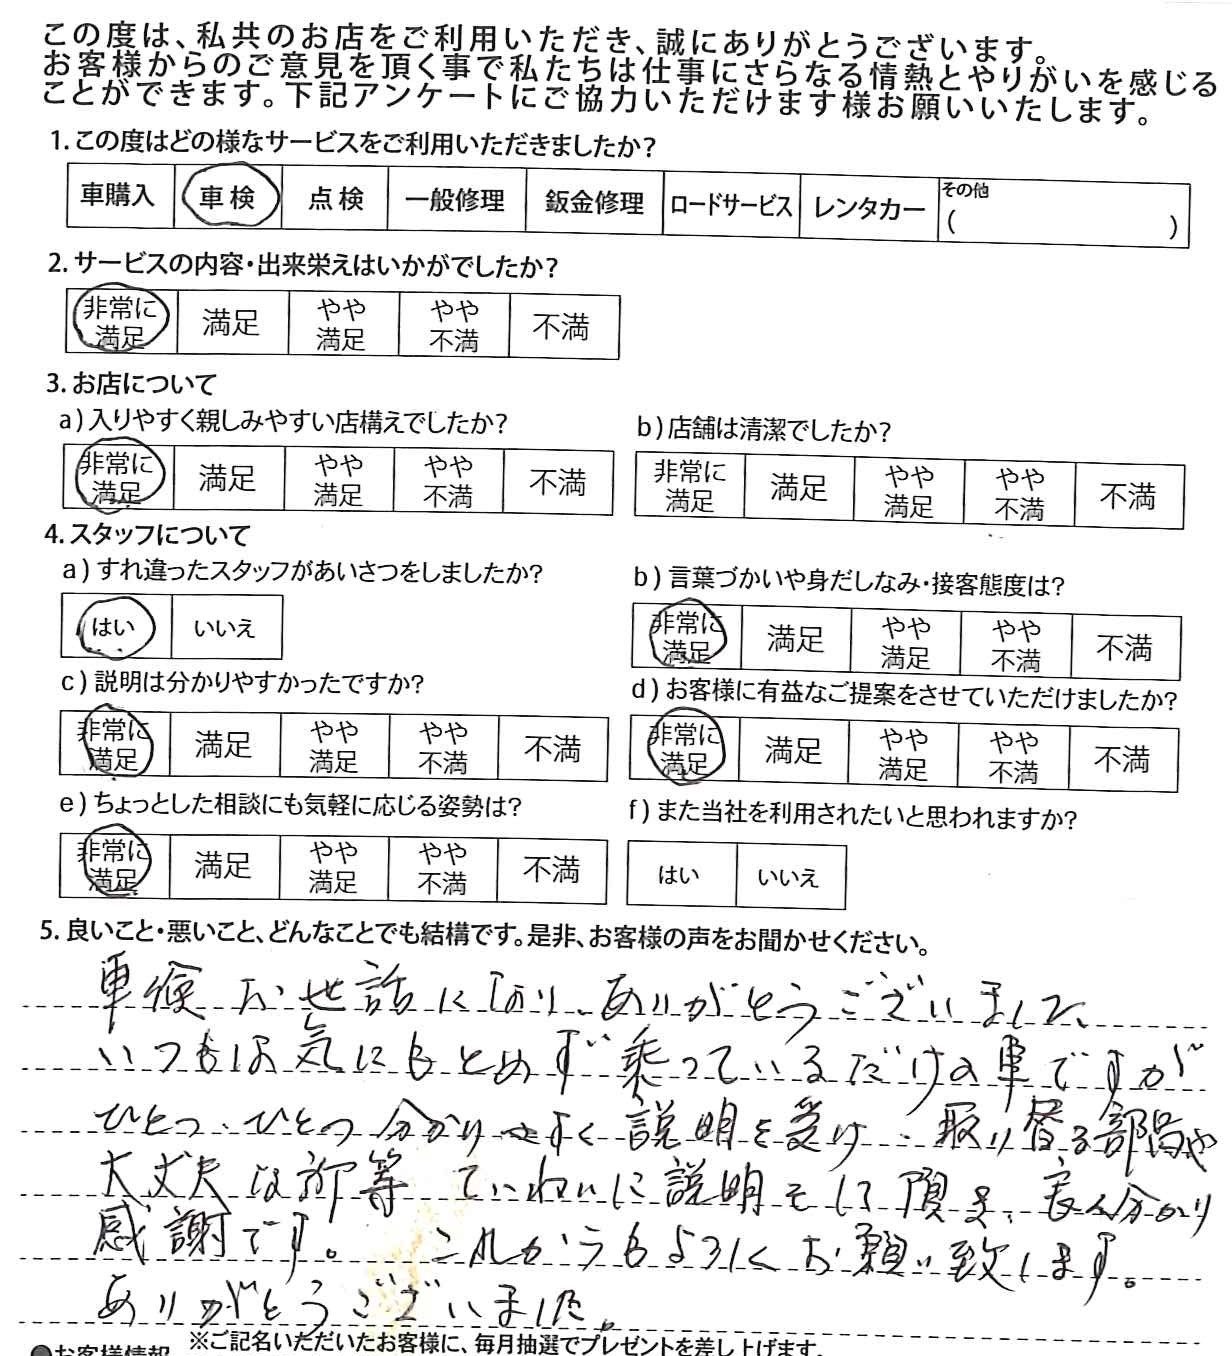 この度は、私共のお店をご利用いただき、誠にありがとうございます。
お客様からのご意見を頂く事で私たちは仕事にさらなる情熱とやりがいを感じる
ことができます。下記アンケートにご協力いただけます様お願いいたします。
1. この度はどの様なサービスをご利用いただきましたか?
車購入 車検 点検 一般修理 鈑金修理 ロードサービス レンタカー その他 ( )
2. サービスの内容・出来栄えはいかがでしたか?
非常に満足 満足 やや満足 やや不満 不満
3. お店について
a) 入りやすく親しみやすい店構えでしたか?
非常に満足 満足 やや満足 やや不満 不満
b) 店舗は清潔でしたか?
非常に満足 満足 やや満足 やや不満 不満
4. スタッフについて
a) すれ違ったスタッフがあいさつをしましたか?
はい いいえ
b) 言葉づかいや身だしなみ・接客態度は?
非常に満足 満足 やや満足 やや不満 不満
c) 説明は分かりやすかったですか?
非常に満足 満足 やや満足 やや不満 不満
d) お客様に有益なご提案をさせていただけましたか?
非常に満足 満足 やや満足 やや不満 不満
e) ちょっとした相談にも気軽に応じる姿勢は?
非常に満足 満足 やや満足 やや不満 不満
f) また当社を利用されたいと思われますか?
はい いいえ
5. 良いこと・悪いこと、どんなことでも結構です。是非、お客様の声をお聞かせください。
車検 お世話になり、ありがとうございました、
いつもは気にもとめず乗っているだけの車ですが
ひとつひとつ分かりやすく説明を受け、取り替る部品や
大丈夫な所等 ていねいに説明をして頂き、良く分かり
感謝です。 これからもよろしくお願い致します。
ありがとうございました。
●お客様情報 ※ご記名いただいたお客様に、毎月抽選でプレゼントを差し上げます。